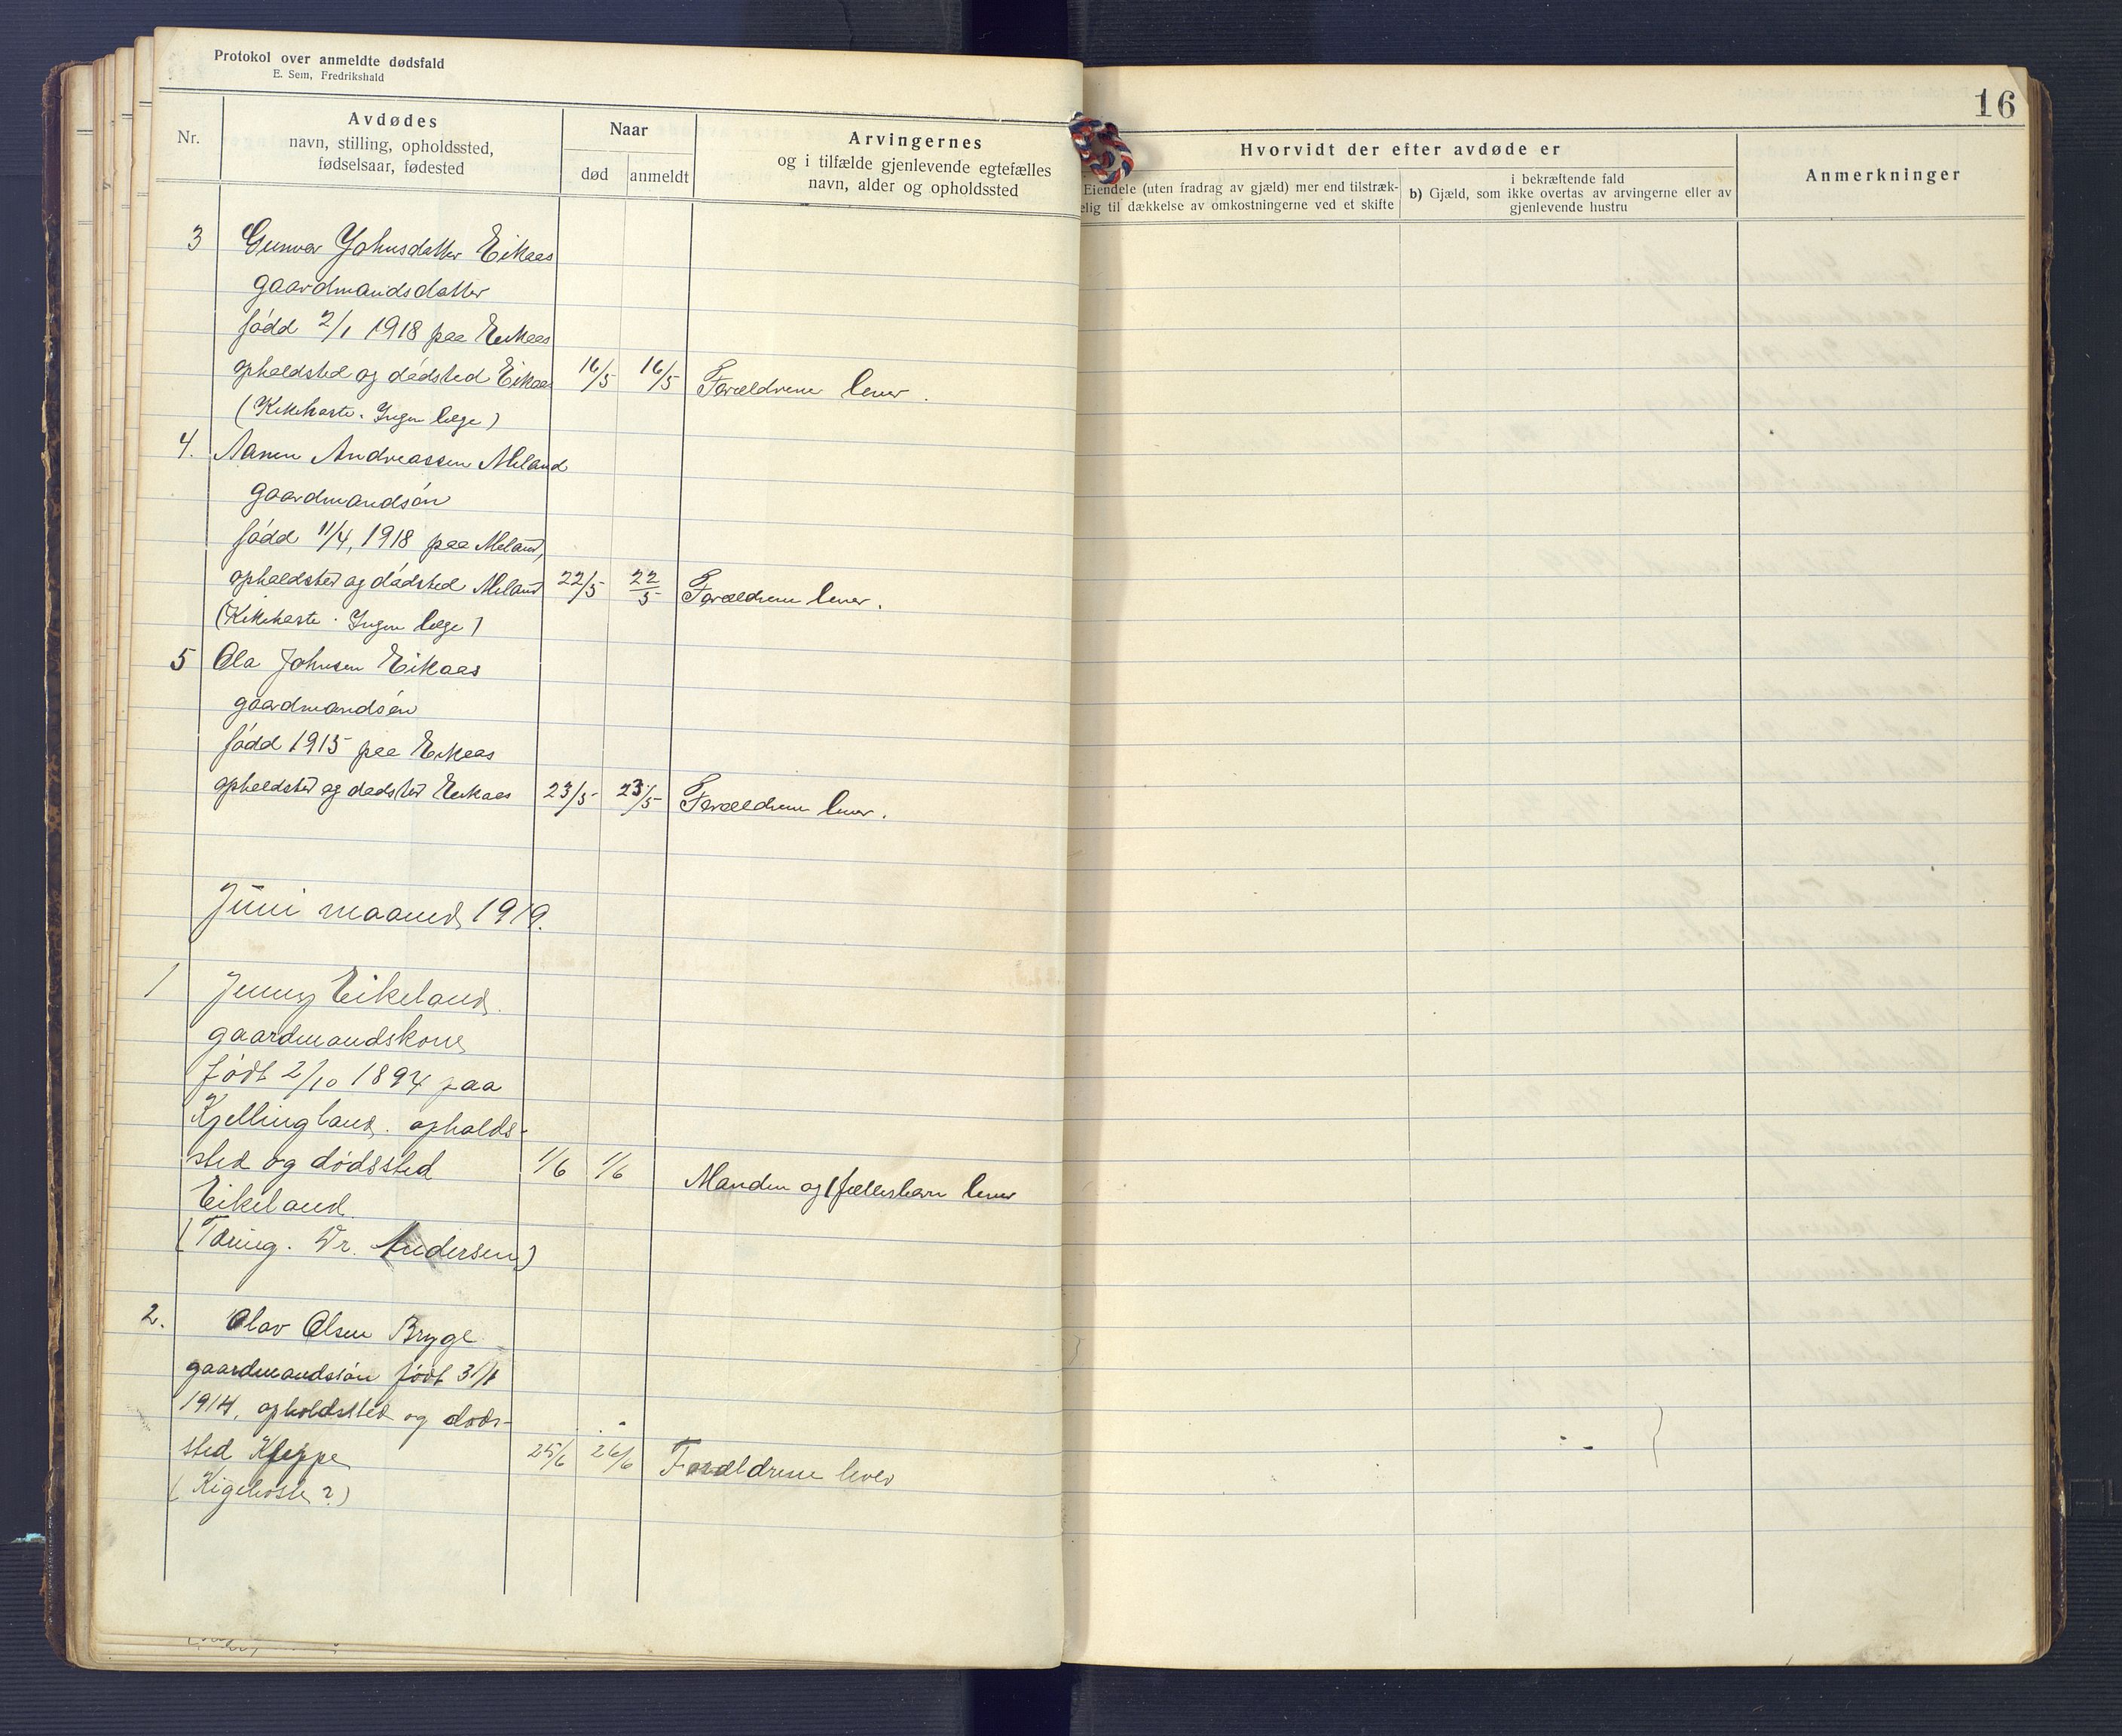 Protokol over anmeldte dødsfald
E. Sem, Fredrikshald
16
Nr.
Avdødes
navn, stilling, opholdssted,
fødselsaar, fødested
Naar
død
anmeldt
Arvingernes
og i tilfælde gjenlevende egtefælles
navn, alder og opholdssted
Hvorvidt der efter avdøde er
Eiendele (uten fradrag av gjæld) mer end tilstræk-
elig til dækkelse av omkostningerne ved et skifte
i bekræftende fald
b) Gjæld, som ikke overtas av arvingerne eller av
gjenlevende hustru
Anmerkninger
3 Gunvor Johnsdatter Eikaas
gaardmandsdatter
född 2/1 1918 paa Eikaas
opholdsted og dödsted Eikaas 16/5 16/5 Forældrene lever.
(Kikhoste. Ingen læge)
4. Aanen Andreassen Meland
gaardmandsön
född 11/4, 1918 paa Meland,
opholdsted og dödsted Meland 22/5 22/5 Forældrene lever.
(Kikhoste. Ingen læge)
5 Ola Johnsen Eikaas
gaardmandsön
född 1915 paa Eikaas
opholdsted og dödsted Eikaas 23/5 23/5 Forældrene lever.
Juni maaned 1919.
1 Jenny Eikeland.
gaardmandskone
födt 2/10 1894 paa
Kjellingland. opholds-
sted og dödssted 1/6 1/6 Manden og 1 fællesbarn lever
Eikeland.
(Tæring. Dr. Andersen)
2. Olav Olsen Bryge
gaardmandssön födt 31/1
1914, opholdssted og döds-
sted Kleppe 25/6 26/6 Forældrene lever
(Kigehoste?)